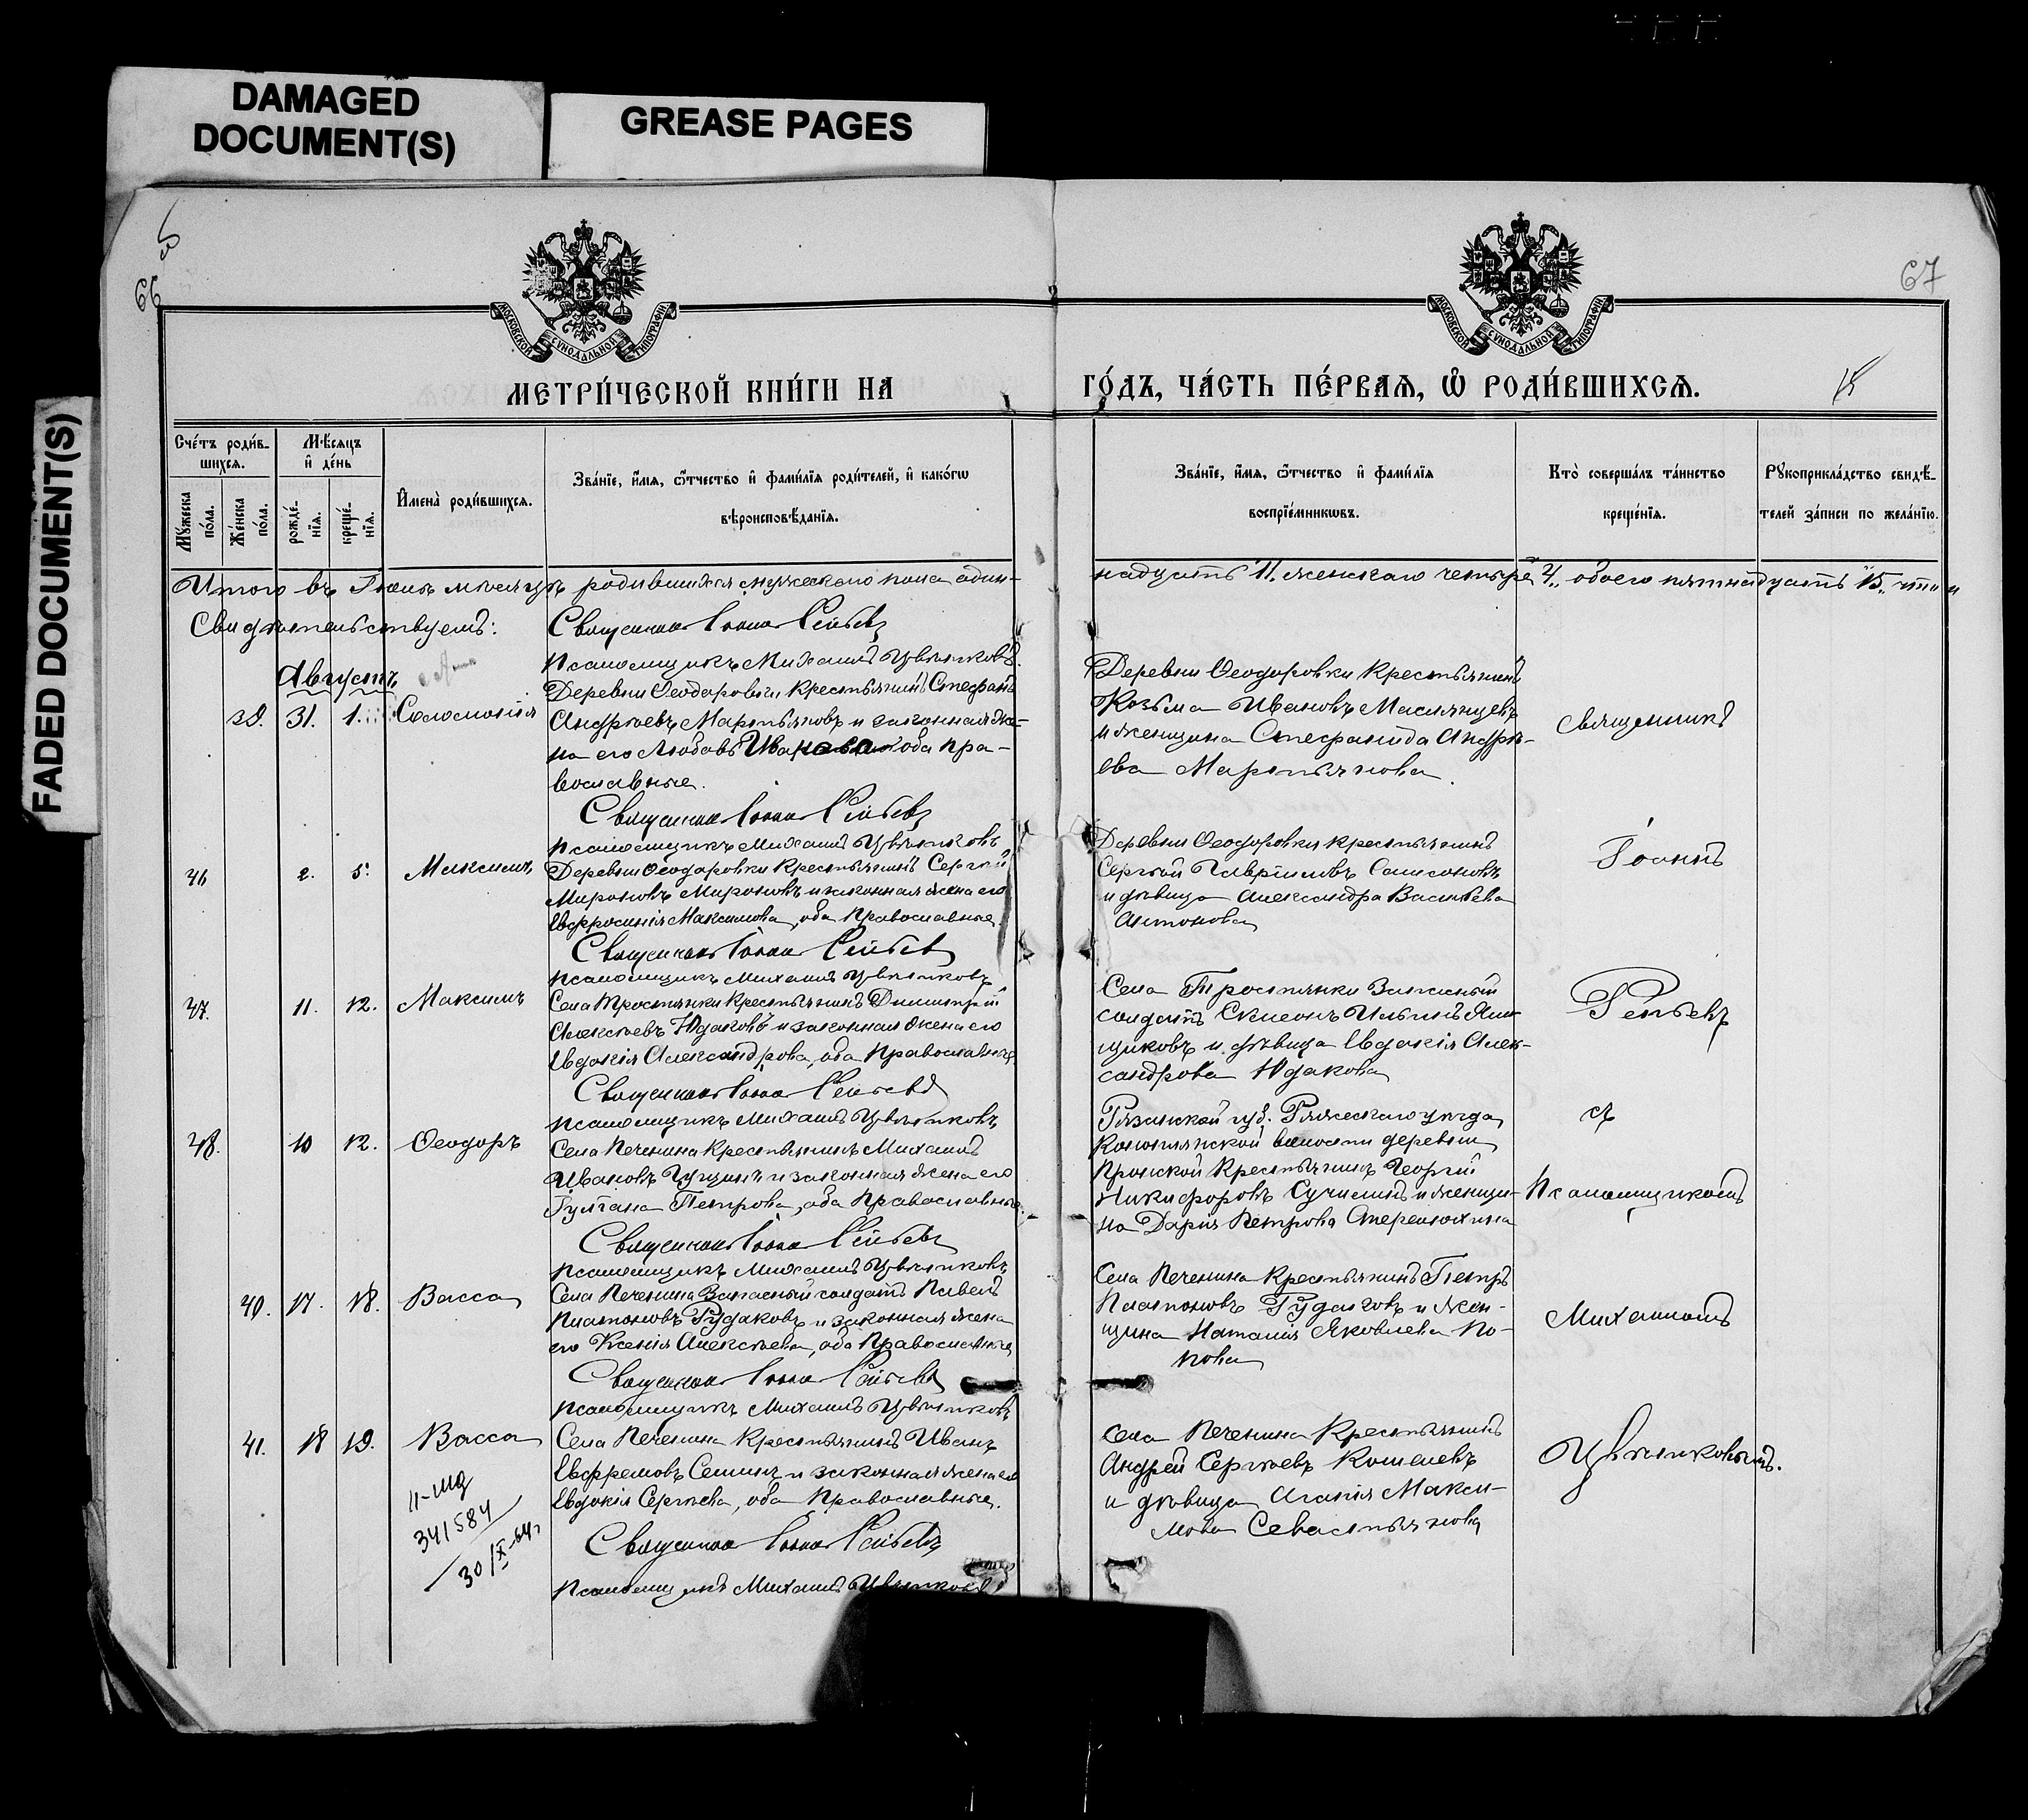 DAMAGED
DOCUMENT(S)
GREASE PAGES
FADED DOCUMENT(S)
66
67
МОСКОВСКОЙ СѴНОДАЛЬНОЙ ТИПОГРАФІИ
МОСКОВСКОЙ СѴНОДАЛЬНОЙ ТИПОГРАФІИ
МЕТРИ́ЧЕСКОЙ КНИ́ГИ НА
ГО́ДЪ, ЧА́СТЬ ПЕ́РВАѦ, Ѡ҆ РОДИ́ВШИХСѦ.
15
Сче́тъ роди́в-
шихсѧ.
Мꙋ́жеска по́ла.
Же́нска по́ла.
Мѣ́сѧцъ
и҆ де́нь
рожде́-
нїѧ.
креще́-
нїѧ.
И҆мена̀ роди́вшихсѧ.
Зва́нїе, и҆́мѧ, ѻ҆́тчество и҆ фами́лїѧ роди́телей, и҆ како́гѡ
вѣроисповѣ́данїѧ.
Зва́нїе, и҆́мѧ, ѻ҆́тчество и҆ фами́лїѧ
воспрїе́мникѡвъ.
Кто̀ соверша́лъ та́инство
креще́нїѧ.
Рꙋкоприкла́дство свидѣ́-
телей за́писи по жела́нїю.
Итого въ Іюлѣ мѣсяцѣ родившихся мужескаго пола один-
надцать 11, женскаго четыре 4, обоего пятнадцать 15,
Свидѣтельствуемъ: Священникъ Іоаннъ
Псаломщикъ Михаилъ Цвѣтковъ.
Августъ
39. 31. 1. Соломонія
Деревни Ѳеодоровки крестьянинъ Стефанъ
Андреевъ Мартьяновъ и законная же-
на его Любовь Иванова оба пра-
вославные.
Деревни Ѳеодоровки крестьянинъ
Козьма Ивановъ Маслянцевъ
и женщина Стефанида Андре-
ева Мартьянова.
Священникъ
Священникъ Іоаннъ
Псаломщикъ Михаилъ Цвѣтковъ
46 2. 5. Максимъ
Деревни Ѳеодоровки крестьянинъ Сергѣй
Мироновъ Мироновъ и законная жена его
Евфросинія Максимова, оба православные
Деревни Ѳеодоровки крестьянинъ
Сергѣй Гавриловъ Самсоновъ
и дѣвица Александра Васильева
Антонова
Іоаннъ
Священникъ Іоаннъ
Псаломщикъ Михаилъ Цвѣтковъ
47. 11. 12. Максимъ
Села Тростянки крестьянинъ Димитрій
Алексѣевъ Юдаковъ и законная жена его
Евдокія Александрова, оба православные
Села Тростянки запасный
солдатъ Симеонъ Ильинъ Ям-
щиковъ и дѣвица Евдокія Алек-
сандрова Юдакова
Священникъ Іоаннъ
Псаломщикъ Михаилъ Цвѣтковъ
48. 10 12. Ѳеодоръ
Села Печенина крестьянинъ Михаилъ
Ивановъ и законная жена его
Іуліана Петрова, оба православные.
Рязанской губ. Ряжскаго уѣзда
волости деревни
Пронской крестьянинъ Георгій
Никифоровъ и женщи-
на Дарія Петрова
съ
Псаломщикомъ
Священникъ Іоаннъ
Псаломщикъ Михаилъ Цвѣтковъ
40. 17. 18. Васса
Села Печенина запасный солдатъ Павелъ
Платоновъ Рудаковъ и законная жена
его Ксенія Алексѣева, оба православные
Села Печенина крестьянинъ Петръ
Платоновъ Рудаковъ и жен-
щина Наталія Яковлева По-
пова
Михаиломъ
Священникъ Іоаннъ
Псаломщикъ Михаилъ Цвѣтковъ
41. 18 19. Васса
Села Печенина крестьянинъ Иванъ
Евфремовъ Семинъ и законная жена его
Евдокія Сергѣева, оба православные.
Села Печенина крестьянинъ
Андрей Сергѣевъ Кошелевъ
и дѣвица Агапія Макси-
мова Севастьянова
Цвѣтковымъ.
341584
30/X-64г
Священникъ Іоаннъ
Псаломщикъ Михаилъ Цвѣтковъ